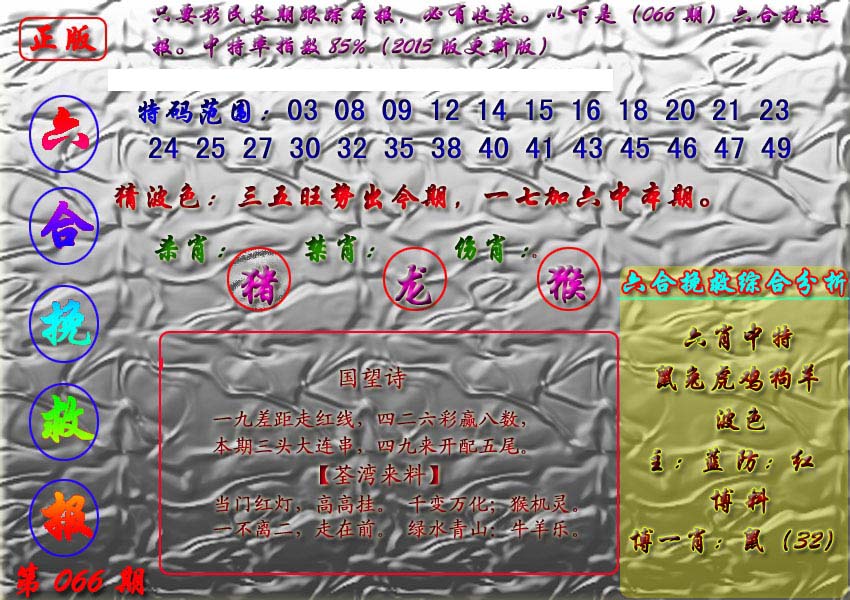 正版
只要彩民长期跟踪本报，必有收获。以下是（066期）六合挽救
报。中特率指数85%（2015版更新版）
六
合
挽
救
报
第066期
特码范围：03 08 09 12 14 15 16 18 20 21 23
24 25 27 30 32 35 38 40 41 43 45 46 47 49
猜波色：三五旺势出今期，一七加六中本期。
杀肖：猪 禁肖：龙 伤肖：猴
国望诗
一九差距走红线，四二六彩赢八数，
本期三头大连串，四九来开配五尾。
【荃湾来料】
当门红灯，高高挂。 千变万化；猴机灵。
一不离二，走在前。 绿水青山；牛羊乐。
六合挽救综合分析
六肖中特
鼠兔虎鸡狗羊
波色
主：蓝防：红
博料
博一肖：鼠（32）